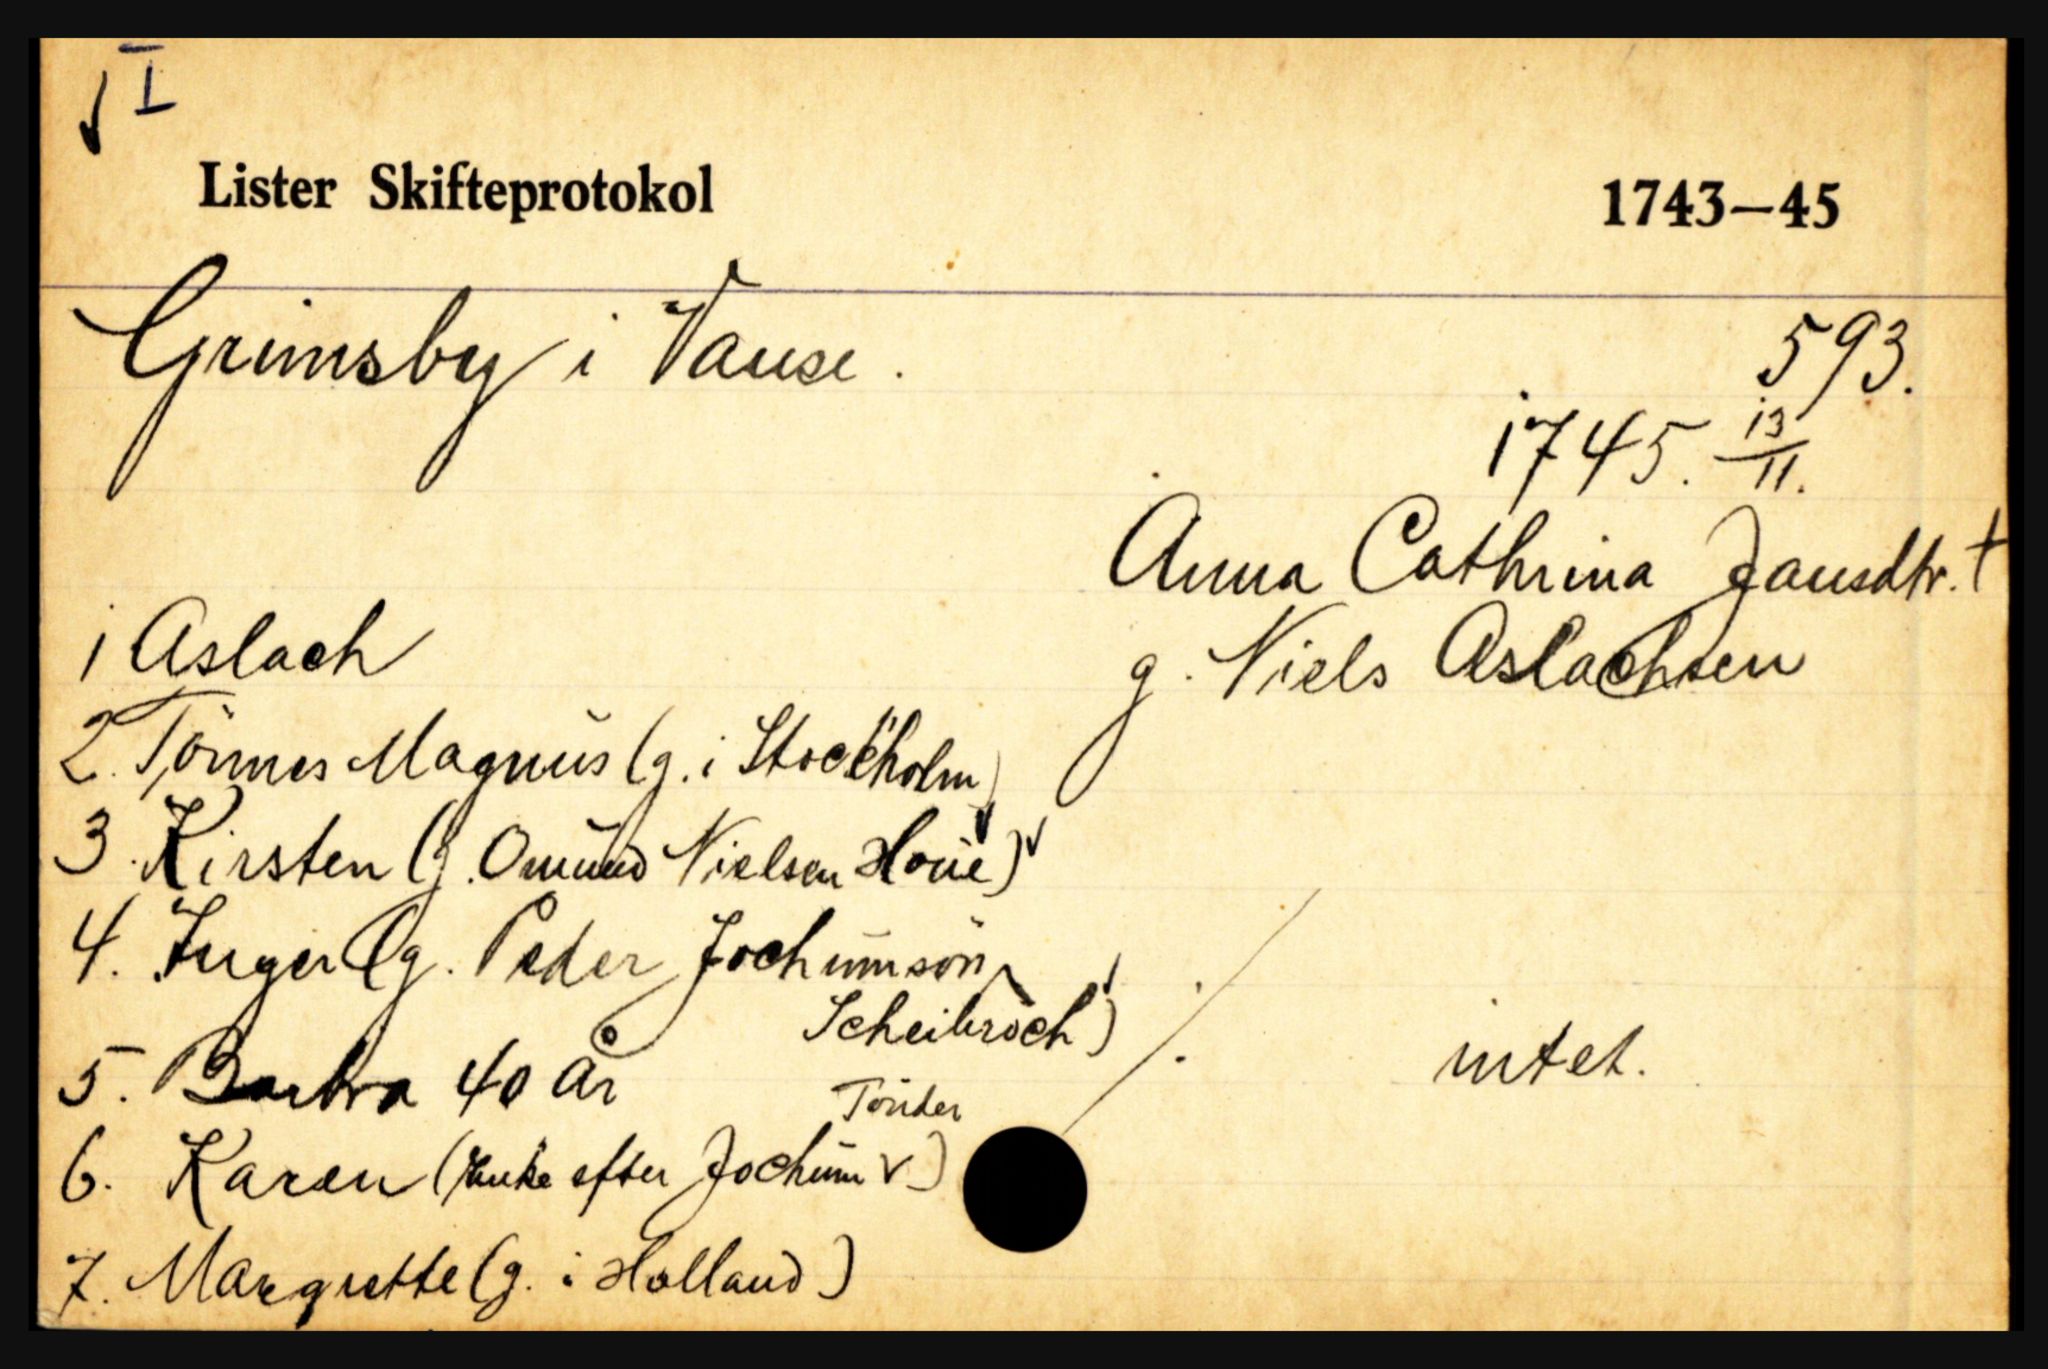 I
Lister Skifteprotokol 1743—45
Grimsby i Vanse.
593.
1745. 13/11.
Anna Cathrina Jansdtr. †
g. Niels Aslachsen
1 Aslach
2. Tönnes Magnus (g. i Stockholm)
3. Kirsten (g. Omund Nielsen Houe)
4. Inger (g. Peder Jochumsön
Scheibroch)
5. Barbra 40 år
Tönder
6. Karen (Enke efter Jochum)
7. Margrette (g. i Holland)
intet.